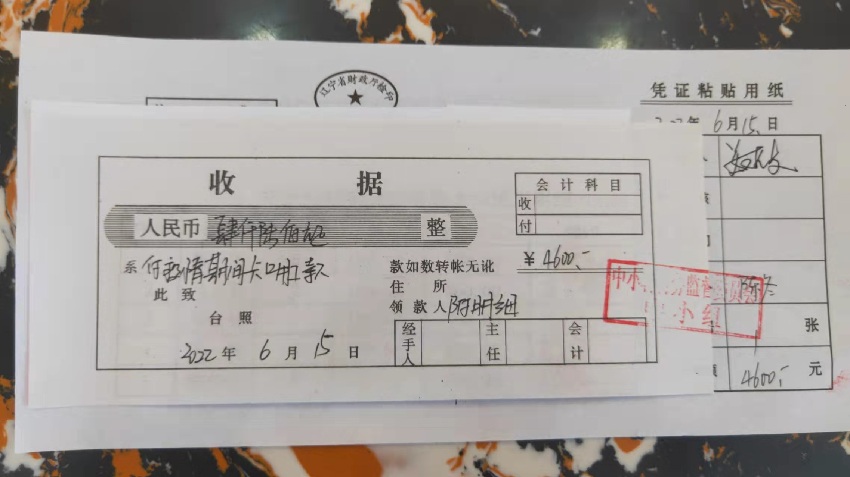 辽宁省财政厅检印
凭证粘贴用纸
6月15日
收 据
会计科目
收
付
人民币 肆仟陆佰元 整
系 付疫情期间卡口用工款
款如数转帐无讹 ¥4600.-
此致
住所
台照
领款人 附明细
2022年6月15日
经手人
主任
会计
小组
张
4600.- 元